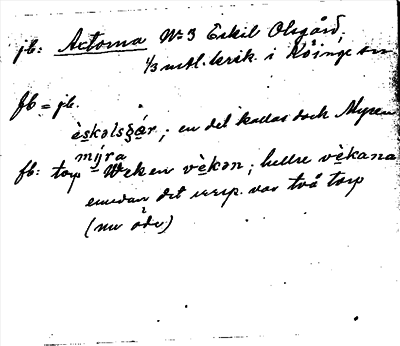 jb: Aetorna No 3 Eskil Olsgård,
1/3 mtl. krik. i Köinge sn
fb = jb.
èskəlsgår; en del kallas dock Myren
mýra
fb: torp Veken vèkən; hellre vèkana
emedan det ursp. var två torp
(nu öde)